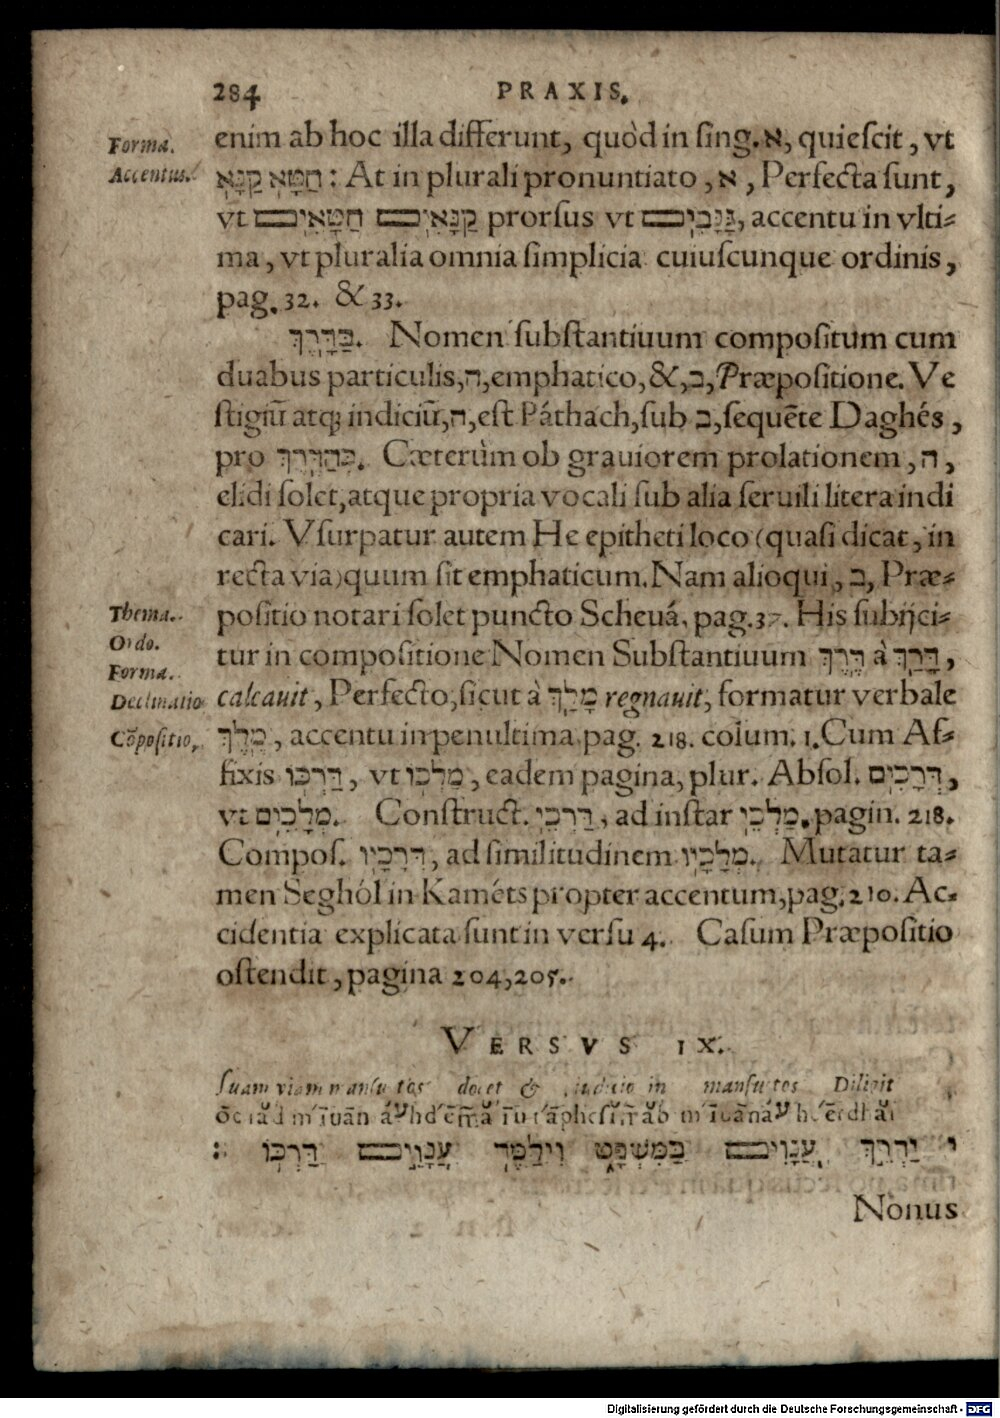 284 PRAXIS.
Forma.
Accentus.
enim ab hoc illa differunt, quòd in sing. א, quiescit, vt
חַטָּא קַנָּא : At in plurali pronuntiato, א, Perfecta sunt,
vt חַטָּאִים קַנָּאִים prorsus vt גַּנָּבִים, accentu in vlti-
ma, vt pluralia omnia simplicia cuiuscunque ordinis,
pag. 32. & 33.
בַּדָּרֶךְ. Nomen substantiuum compositum cum
duabus particulis, ה, emphatico, &, ב, Præpositione. Ve
stigiũ atq; indiciũ, ה, est Páthach, sub ב, sequẽte Daghés,
pro בְּהַדֶּרֶךְ. Cæterùm ob grauiorem prolationem, ה,
elidi solet, atque propria vocali sub alia seruili litera indi
cari. Vsurpatur autem He epitheti loco (quasi dicat, in
recta via) quum sit emphaticum. Nam alioqui, ב, Præ-
Thema.
Ordo.
Forma.
Declinatio
Cõpositio,
positio notari solet puncto Scheuá, pag. 37. His subijci-
tur in compositione Nomen Substantiuum דֶּרֶךְ à דָּרַךְ,
calcauit, Perfecto, sicut à מָלַךְ regnauit, formatur verbale
מֶלֶךְ, accentu in penultima, pag. 218. colum. 1. Cum Af-
fixis דַּרְכּוֹ, vt מַלְכּוֹ, eadem pagina, plur. Absol. דְּרָכִים,
vt מְלָכִים. Construct. דַּרְכֵי, ad instar מַלְכֵי, pagin. 218.
Compos. דְּרָכָיו, ad similitudinem מְלָכָיו. Mutatur ta-
men Seghól in Kaméts propter accentum, pag. 210. Ac-
cidentia explicata sunt in versu 4. Casum Præpositio
ostendit, pagina 204, 205.
VERSVS IX.
suam viam mansuetos docet & iudicio in mansuetos Diliget
י יַדְרֵךְ עֲנָוִים בַּמִּשְׁפָּט וִילַמֵּד עֲנָוִים דַּרְכּוֹ :
Nonus
Digitalisierung gefördert durch die Deutsche Forschungsgemeinschaft - DFG